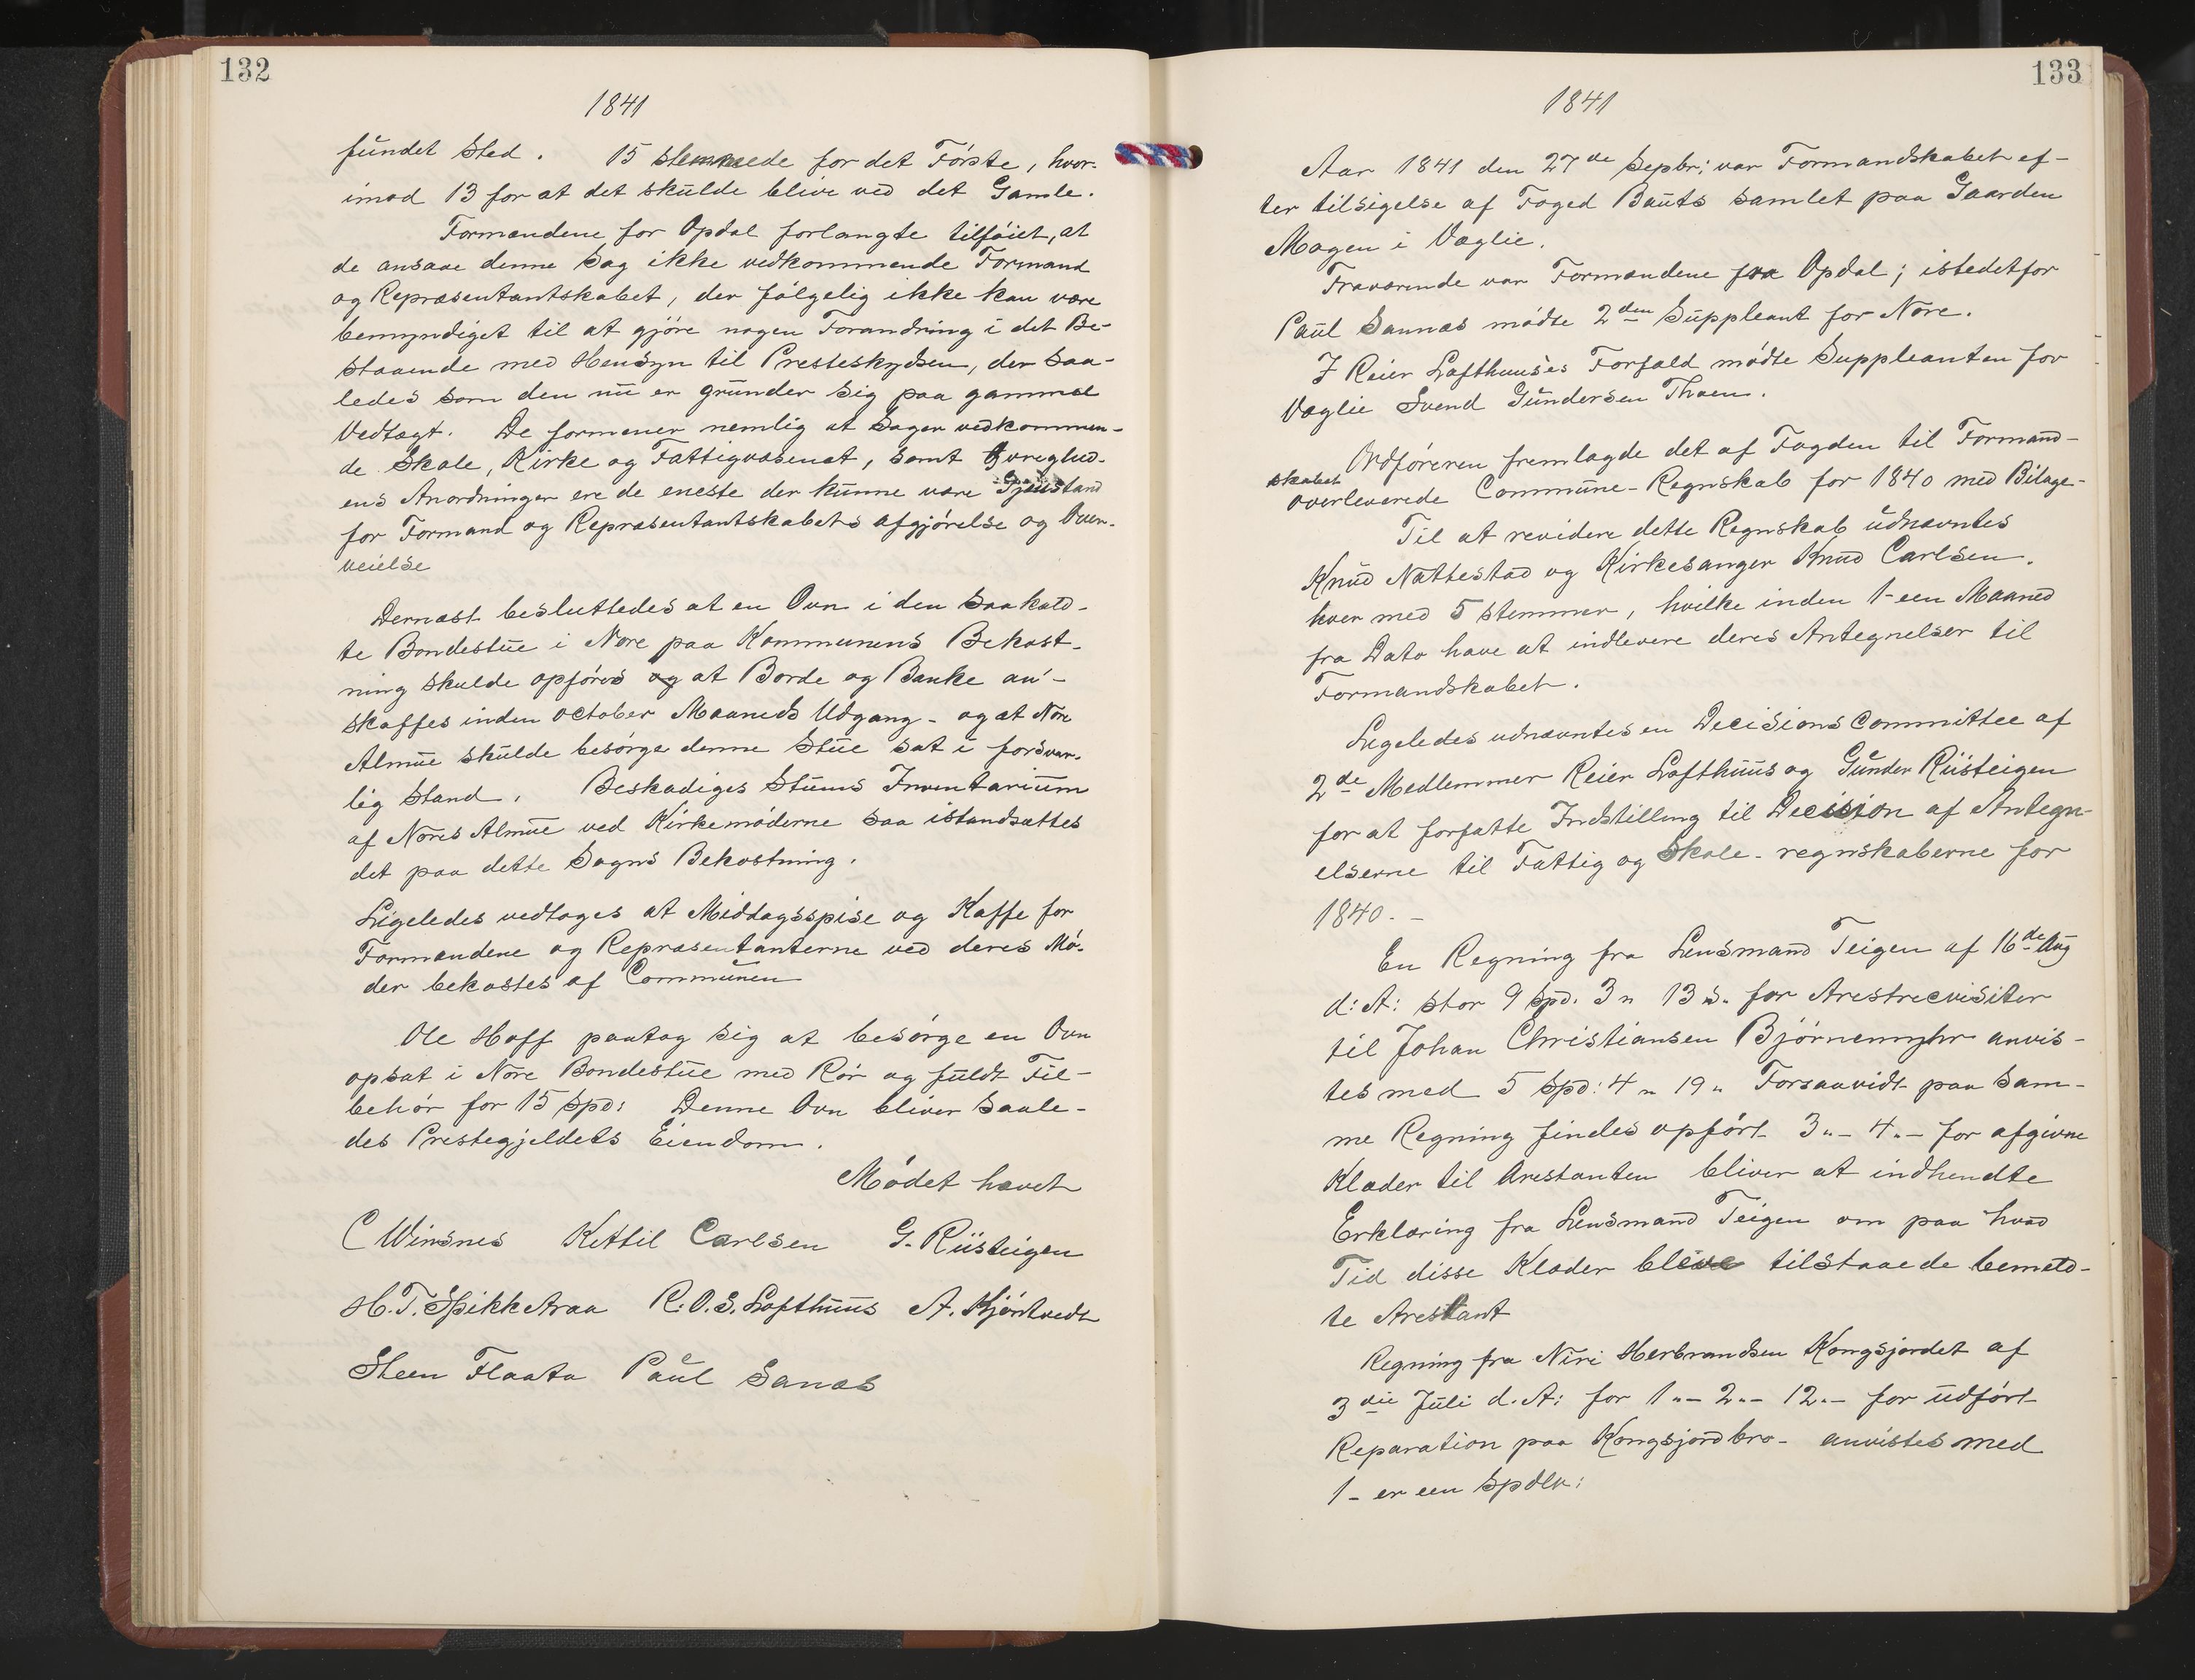 132
1841
fundet Sted. 15 stemmede for det Første, hvor-
imod 13 for at det skulde blive ved det Gamle.
Formændene for Opdal forlangte tilføiet, at
de ansaae denne Sag ikke vedkommende Formand
og Repræsentantskabet, der følgelig ikke kan være
bemyndiget til at gjöre nogen Forandring i det Be-
staaende med Hensyn til Presteskydsen, der saa-
ledes som den nu er grunder sig paa gammel
Vedtægt. De formener nemlig at Sager vedkommen-
de Skole, Kirke og Fattigvæsenet, samt Øvrighed-
ens Anordninger ere de eneste der kunne være Gjenstand
for Formand og Repræsentantskabets afgjörelse og Over-
veielse
Dernæst besluttedes at en Ovn i den saakald-
te Bondestue i Nore paa Kommunens Bekost-
ning skulde opføres og at Borde og Bænke an-
skaffes inden October Maaneds Udgang - og at Nore
Almue skulde besørge denne Stue sat i forsvar-
lig Stand. Beskadiges Stuens Inventarium
af Nores Almue ved Kirkemøderne saa istandsættes
det paa dette Sogns Bekostning.
Ligeledes vedtoges at Middagsspise og Kaffe for
Formændene og Repræsentanterne ved deres Mø-
der bekostes af Communen
Ole Hoff paatog sig at besørge en Ovn
opsat i Nore Bondestue med Rör og fuldt Til-
behör for 15 Spd: Denne Ovn bliver saale-
des Prestegjeldets Eiendom.
Mødet hævet
C Winsnes Kittil Carlsen G. Riisteigen
H.T. Spikkeraa R.O.S. Lofthuus A. Kjöntvedt
Steen Flaata Paul Sanæs
133
1841
Aar 1841 den 27de Sepbr; var Formandskabet ef-
ter tilsigelse af Foged Bauts samlet paa Gaarden
Mogen i Væglie.
Fraværende var Formændene fra Opdal; istedetfor
Paul Sannæs mödte 2den Suppleant for Nore.
I Reier Lofthuuses Forfald mødte Suppleanten for
Væglie Svend Gundersen Thoen.
Ordføreren fremlagde det af Fogden til Formand-
skabet
overleverede Commune-Regnskab for 1840 med Bilage-
Til at revidere dette Regnskab udnævntes
Knud Nattestad og Kirkesanger Knud Carlsen.
hver med 5 stemmer, hvilke inden 1-een Maaned
fra Dato have at indlevere deres Antegnelser til
Formandskabet.
Ligeledes udnævntes en Decisions Committee af
2de Medlemmer Reier Lofthuus og Gunder Riisteigen
for at forfatte Indstilling til Decision af Antegn-
elserne til Fattig og Skole-regnskaberne for
1840. -
En Regning fra Lensmand Teigen af 16de Aug
d: A: stor 9 Spd. 3 " 13 s. for Arestrecvisiter
til Johan Christiansen Björnemyhr anvis-
tes med 5 Spd: 4 " 19 " Forsaavidt paa sam-
me Regning findes opfört 3 "- 4 "- for afgivne
Klæder til Arestanten bliver at indhendte
Erklæring fra Lensmand Teigen om paa hvad
Tid disse Klæder bleve tilstaaede bemeld-
te Arestant
Regning fra Niri Herbrandsen Kongsjordet af
3die Juli d. A: for 1 "- 2 "- 12 "- for udfört
Reparation paa Kongsjordbro- anvistes med
1 - er een Spdlr: